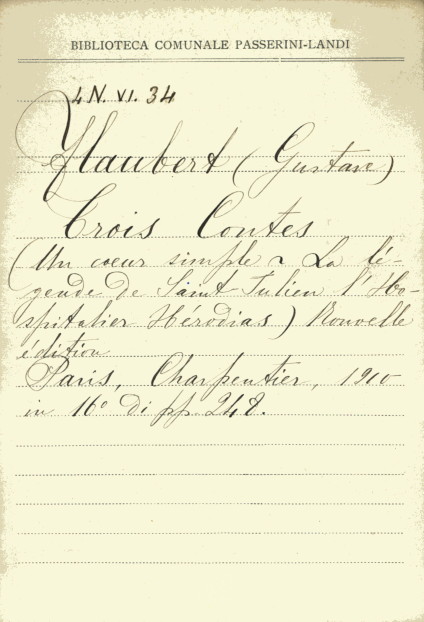 BIBLIOTECA COMUNALE PASSERINI-LANDI
4 N. VI. 34
Flaubert (Gustave)
Trois Contes
(Un coeur simple ~ La lé-
gende de Saint Julien l'Ho-
spitalier Hérodias) Nouvelle
édition
Paris, Charpentier, 1910
in 16° di pp. 248.